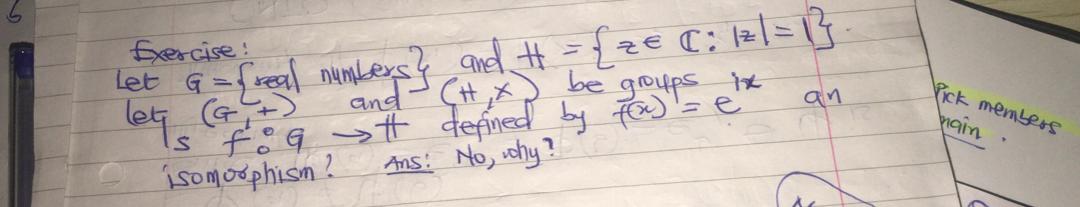 6
Exercise:
Let G = {real numbers} and H = {z ∈ ℂ: |z| = 1}.
let (G, +) and (H, ×) be groups
Is f: G → H defined by f(x) = e^{ix} an
isomorphism? Ans: No, why?
Pick members